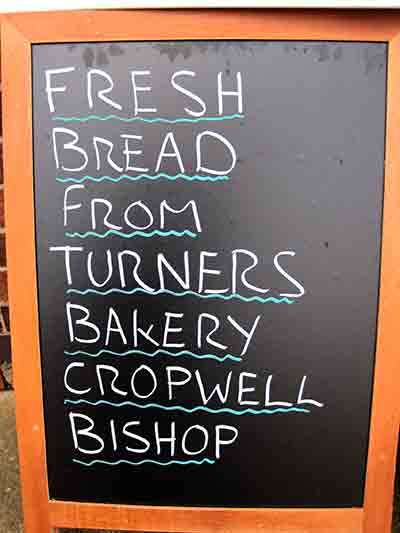 FRESH
BREAD
FROM
TURNERS
BAKERY
CROPWELL
BISHOP